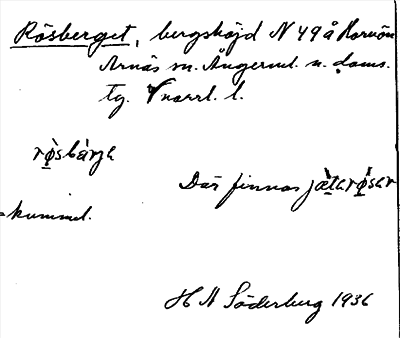 Rösberget, bergshöjd N 49 å Hornön
Arnäs sn. Ångerml. n. doms.
tg. Vnorrl. l.
rø̀sbàrja
Där finnas jæ̀tarø̀sar
=kummel.
H N Söderberg 1936